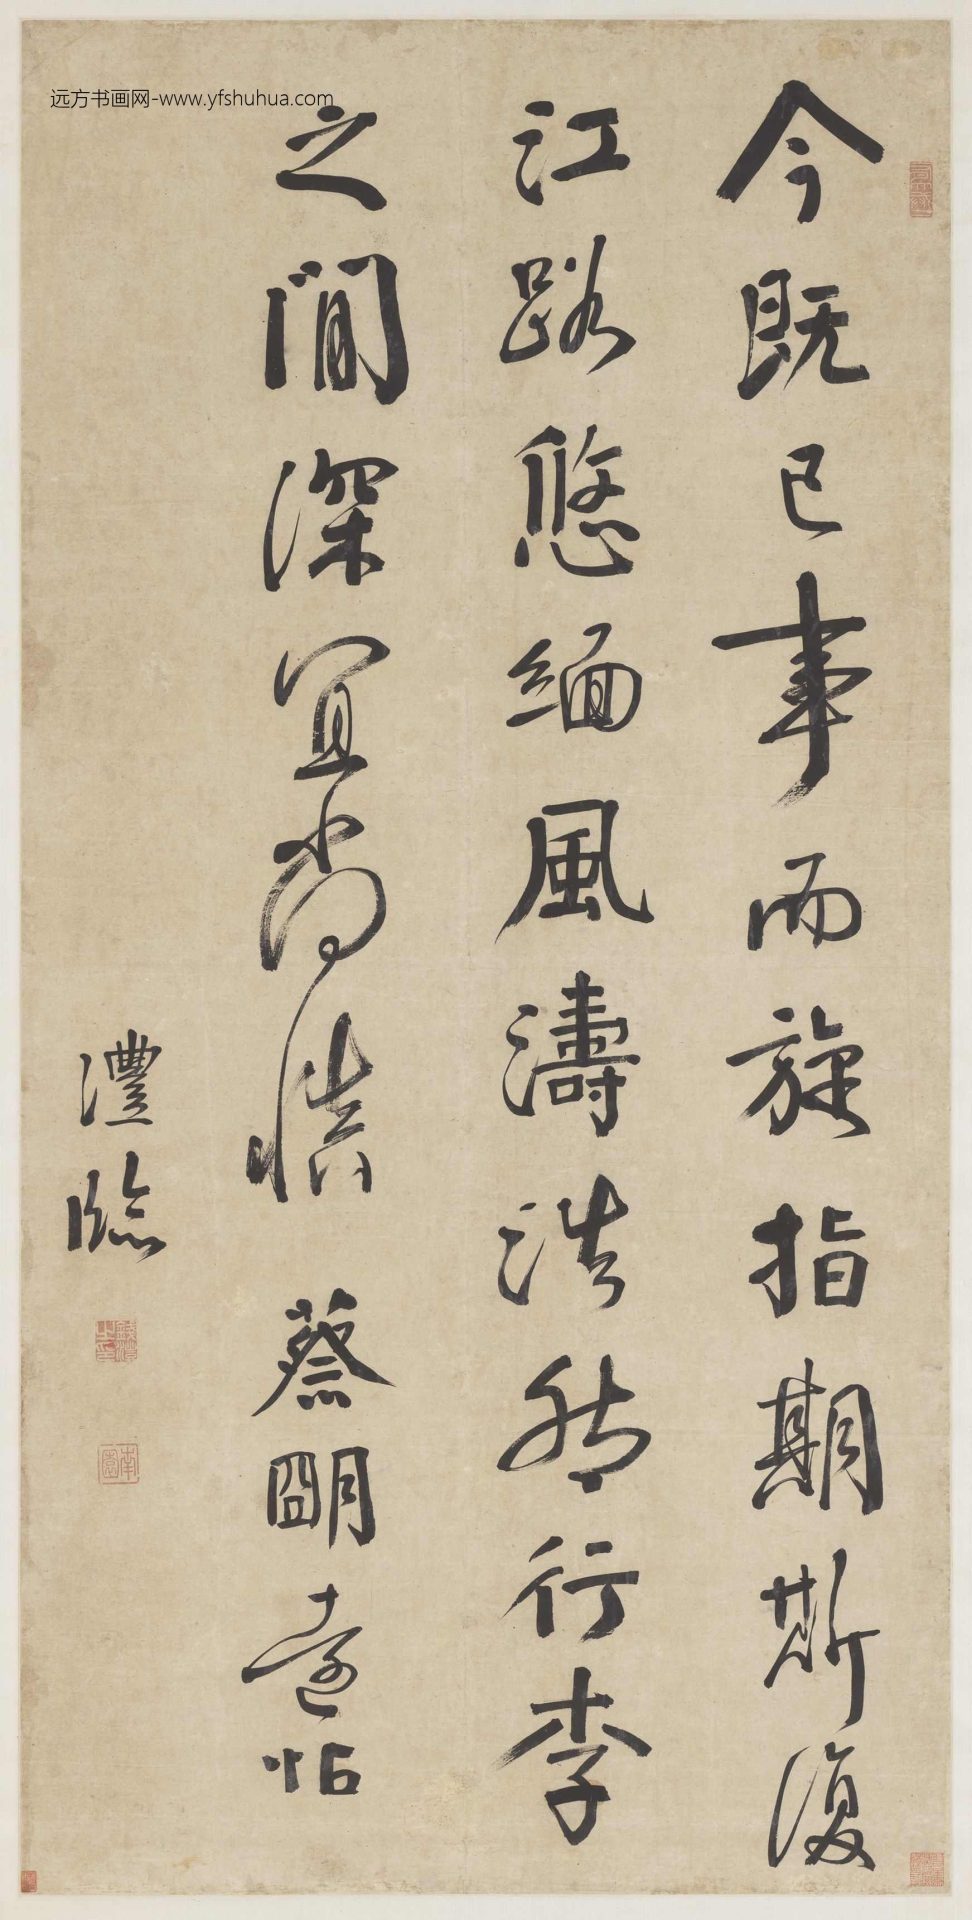 远方书画网-www.yfshuhua.com
今既已事而旋指期斯復
江路悠緬風濤浩然行李
之間深宜尚慎 蔡明遠帖
灃臨
南園